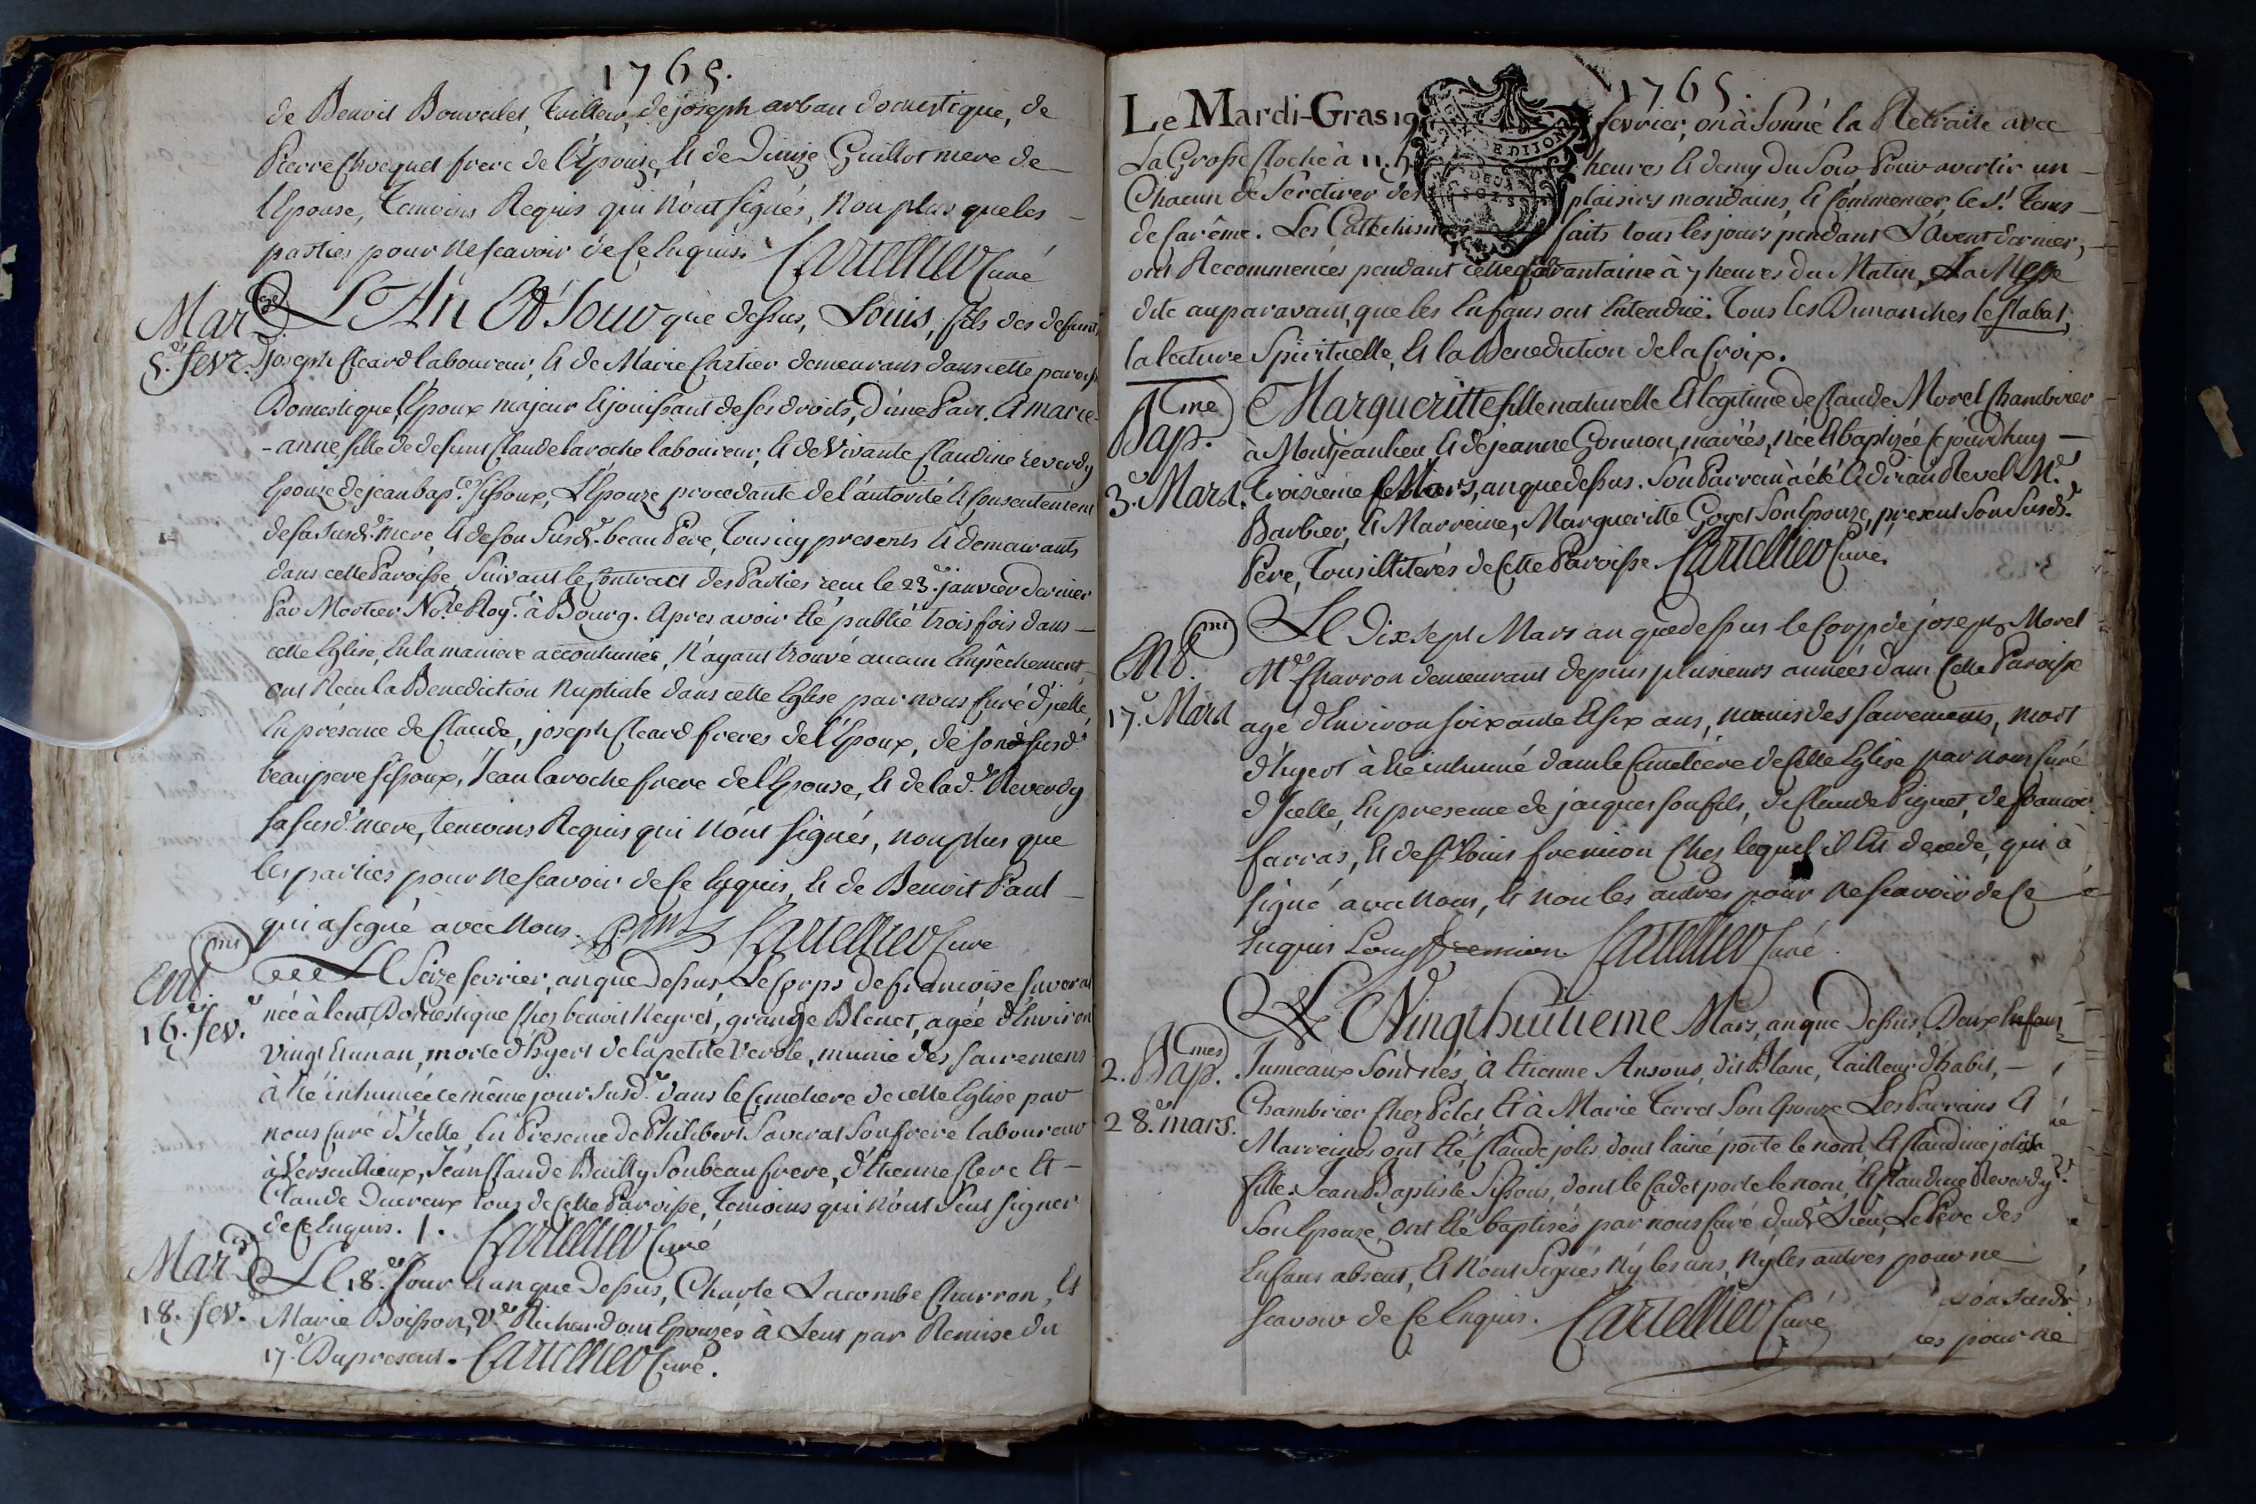 1765.
de Benoit Bouvelet, Tailleur, de joseph arban domestique, de
Pierre Chocquet frere de l'Epouze, et de Denise Guillot mere de
l'Epouse, Temoins Requis qui n'ont signés, non plus que les
parties pour ne scavoir de ce Enquis. Cartellier Curé
Mar.ge
5.e fevr.
L'An et Jour que dessus, Louis, fils des defunts
Joseph Cleard laboureur, et de Marie Cartier demeurans dans cette paroisse
Domestique, l'Epoux majeur et jouissant de ses droits, d'une Part. et marie
-anne fille de defunt Claude Laroche laboureur, et de Vivante Claudine reverdy
Epouze de jean bap.te Sissoux, L'Epouze procedante de l'autorité et consentement
de sa susd.e mere et de son susd. beau Pere, Tous icy presents et demeurants
dans cette Paroisse, Suivant le Contract des Parties recu le 23.e janvier dernier
Par Mortier No.re Roy.l à Bourg. Apres avoir été publié trois fois dans
cette Eglise, en la maniere accoutumée, N'ayant trouvé aucun Empêchement,
ont Recu la Benediction Nuptiale dans cette Eglise par nous Curé d'jcelle,
En présence de Claude, joseph Cleard freres de l'Epoux, de son susd.
beaupere Sissoux, Jean laroche frere de l'Epouse, et de la d.e Reverdy
sa susd.e mere, temoins Requis qui n'ont signés, non plus que
les parties pour ne scavoir de ce Enquis, et de Benoit Paul
qui a signé avec Nous. Cartellier Curé
Ent.mt
16.e fev.
Le Seize fevrier, an que dessus, Le Corps de francoise saverat
née à lent, Domestique chez benoit Neyret, grange Blenet, agée d'Environ
vingt et un an, morte d'hyert de la petite Verole, munie des sacremens
à été inhumée ce même jour susd. dans le Cimetiere de cette Eglise par
nous Curé d'Icelle, En Presence de Philibert Saverat son frere laboureur
à Versailleux, Jean Claude Bailly son beau frere, d'Etienne Clerc et
Claude Ducreux tous de cette Paroisse, Temoins qui n'ont sçeu signer
de ce Enquis. Cartellier Curé
Mar.ge
18.e fev.
Le 18.e Jour et an que dessus, Charle Lacombe Charron, et
Marie Boisson, V.e Richard ont Epouzés à Lent par Remise du
17.e Du present. Cartellier Curé.
1765.
Le Mardi-Gras 19 fevrier, on à sonné la Retraite avec
La Grosse Cloche à 11. h heures et demy du Soir Pour avertir un
Chacun de se retirer des plaisirs mondains, et commencer le S.t Tems
de Carême. Les Cathechism faits tous les jours pendant L'Avent dernier,
ont Recommencés pendant cette quarantaine à 7 heures du Matin, La Messe
dite auparavant, que les Enfans ont Entenduë. Tous les Dimanches le stabat,
la lecture Spirituelle, et la Benediction de la Croix.
Bap.me
3.e Mars.
Margueritte fille naturelle et legitime de Claude Morel Chambrier
à Montjeanlieu et de jeanne Gonnon, mariés, née et baptizée ce jourdhuy
Troisieme Mars, an que dessus. Son Parrein à été Revel M.e
Barbier, et Marreine, Margueritte Goyet son Epouze, present son susd.t
Père, Tous illiterés de cette Paroisse. Cartellier Curé.
Ent.mt
17.e Mars
Le Dix sept Mars an que dessus le Corps de joseph Morel
M.e Charron demeurant depuis plusieurs années dans cette Paroisse
agé d'Environ soixante et six ans, munis des sacremens, mort
d'hyert à été inhumé dans le Cimetiere de cette Eglise par nous Curé
d'Icelle, En presence de jacques son fils, de Claude Piguet, de francois
farras, et de S.r Louis fremion chez lequel il est decedé, qui à
signé avec nous, et non les autres pour ne scavoir de ce
Enquis Louys fremion Cartellier Curé.
2. Bap.mes
28.e mars.
Le Vingt huitieme Mars, an que dessus, Deux Enfans
Jumeaux sont nés, à Etienne Ansous, dit Blanc, Tailleur d'habit,
Chambrier chez Pelet, et à Marie Terret son Epouze Les Parrains et
Marreines ont été Claude jolis dont lainé porte le nom, et Claudine jolis sa
fille. Jean Baptiste Sissous, dont le Cadet porte le nom, et Claudine Reverdy
son Epouze, ont été baptisés par nous Curé dud. Lieu, Le Père des
Enfans absent, et n'ont signés ny les uns, ny les autres pour ne
scavoir de ce Enquis. Cartellier Curé
res pour ne